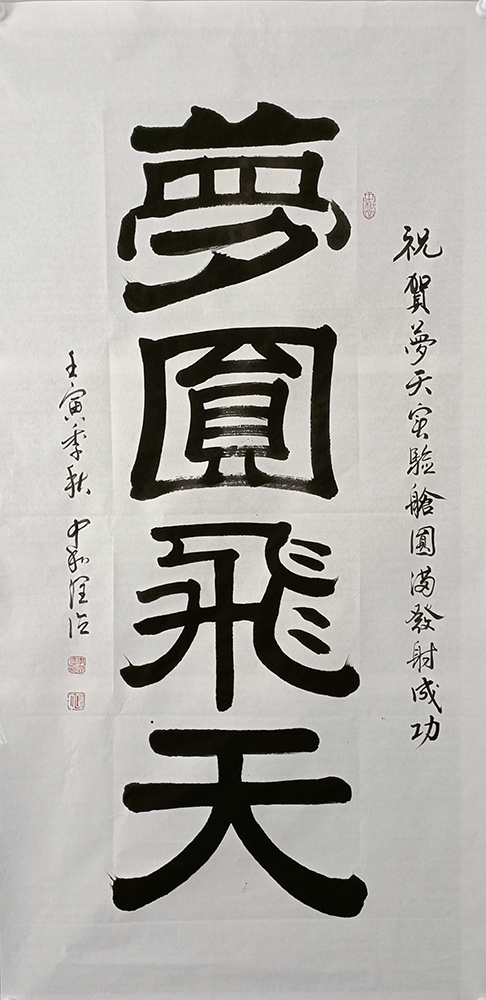 祝賀夢天实驗艙圓满發射成功
夢圓飛天
壬寅季秋 中和